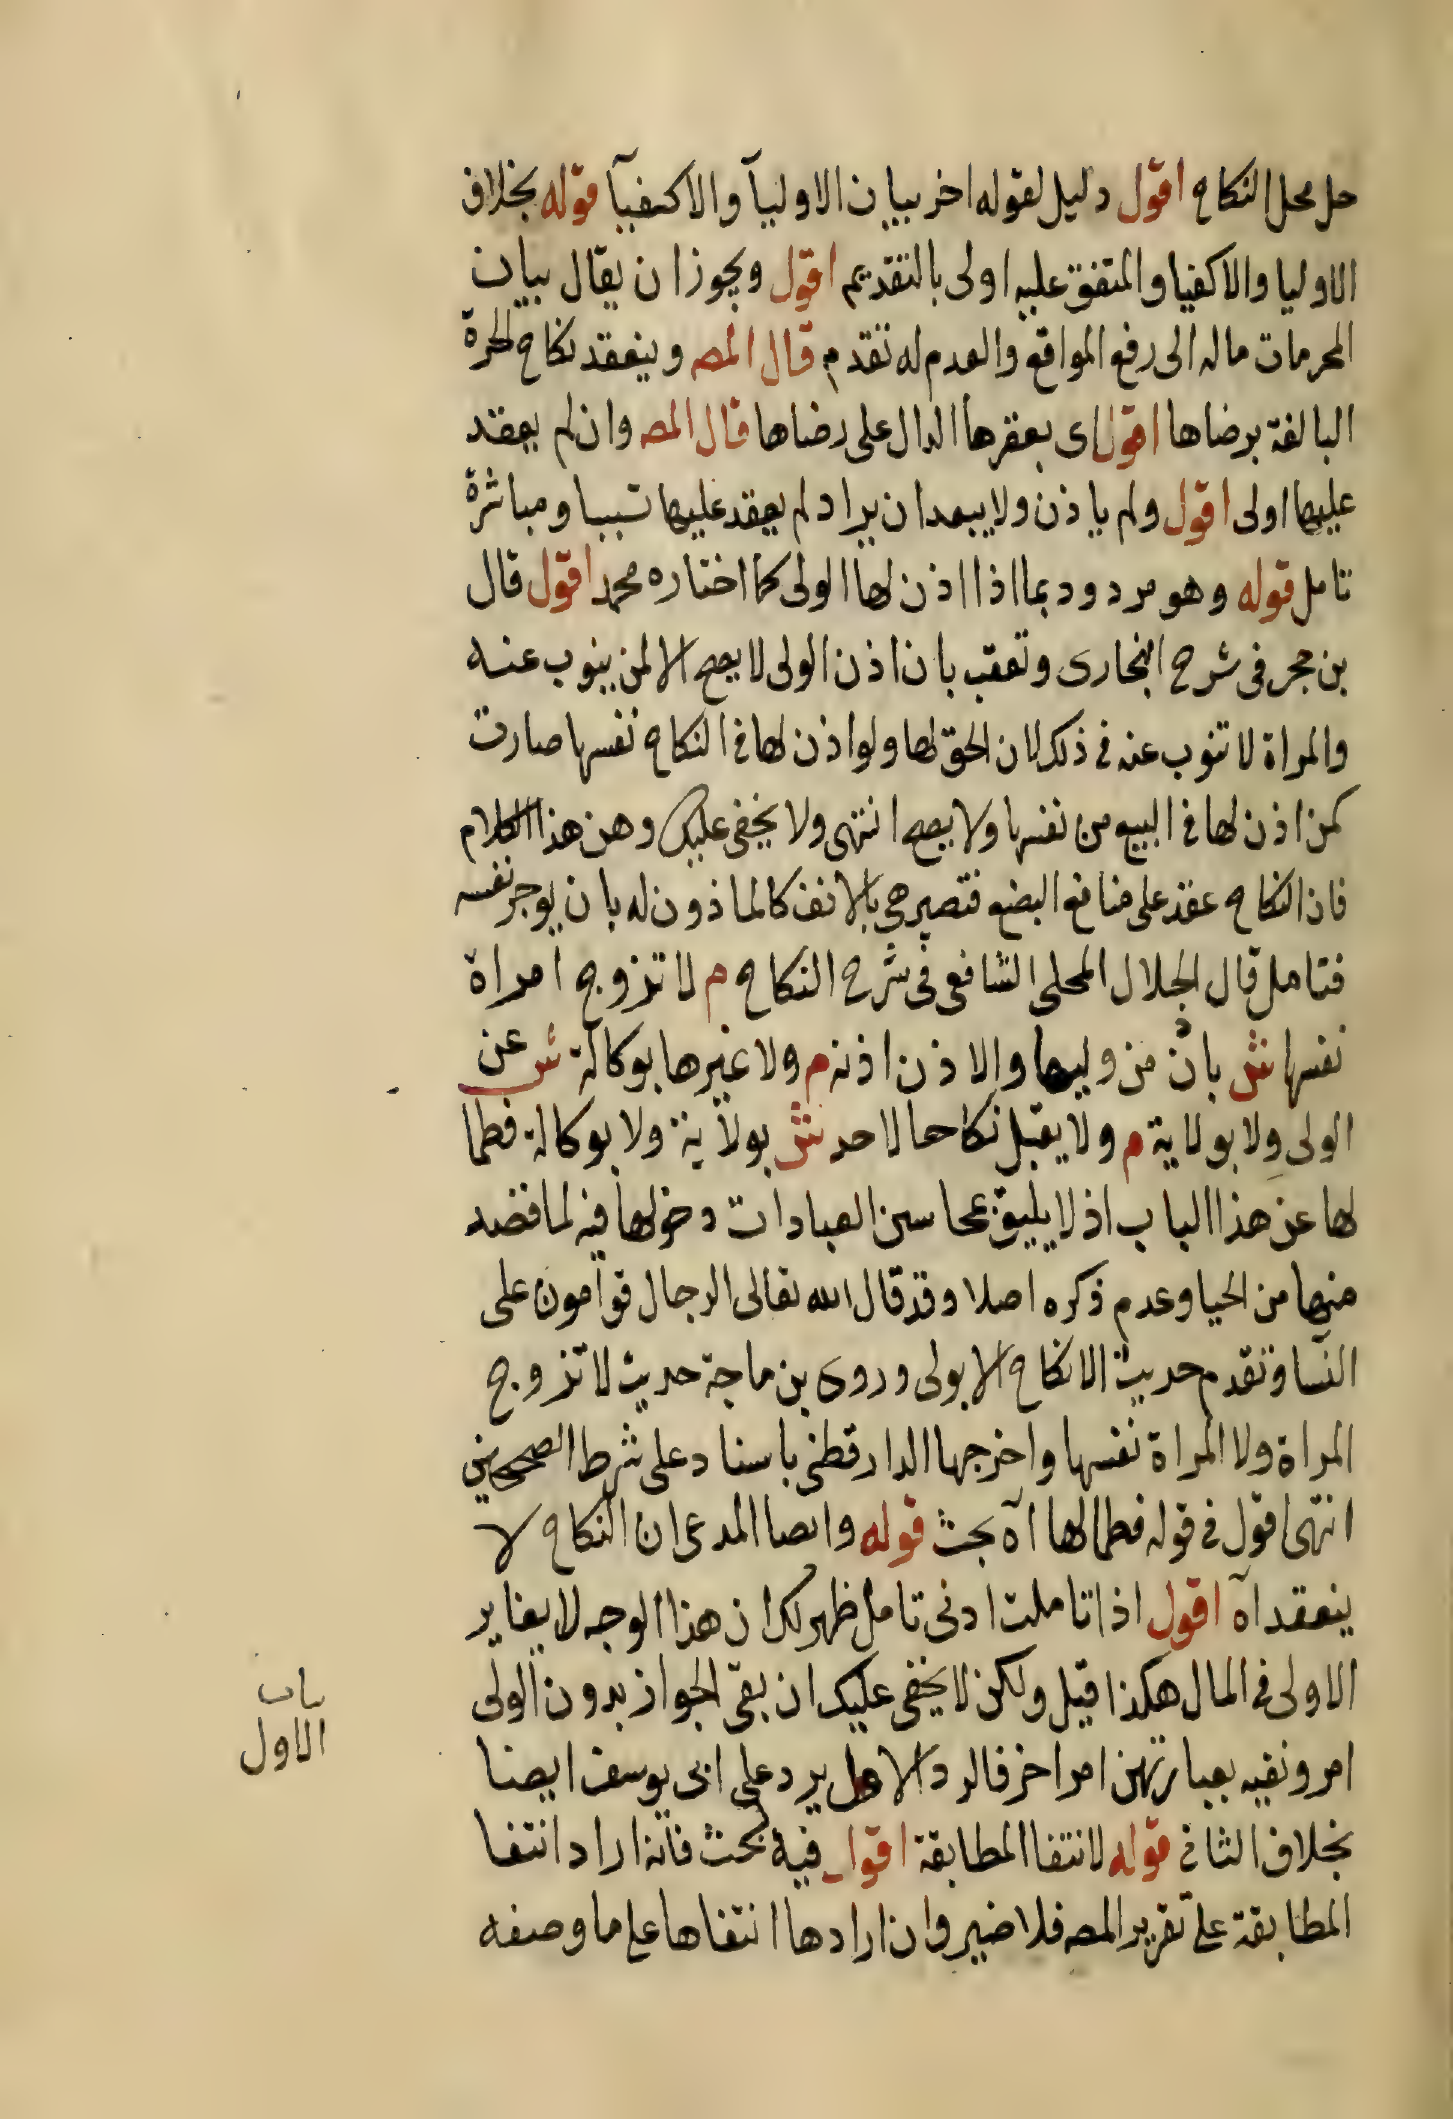 حل محل النكاح اقول دليل لقوله اخر بيان الاولياآ والاكفياآ قوله بخلاف
الاوليا والاكفيا والمتفق عليه اولى بالتقديم اقول ويجوز ان يقال بيان
المحرمات ماله الى رفع المواقع والعدم له تقدم قال المصه وينعقد نكاح الحرة
البالغة برضاها اقول اى بعقرها الدال على رضاها قال المصه وان لم يعقد
عليها اولى اقول ولم ياذن ولا يبعد ان يراد لم يعقد عليها تسببا ومباشرة
تامل قوله وهو مردود بما اذا اذن لها الولى كما اختاره محمد اقول قال
بن حجر فى شرح البخارى وتعقب بان اذن الولى لا يصح الا لمن ينوب عنه
والمراة لا تنوب عنه فى ذلك لان الحق لها ولو اذن لها فى النكاح نفسها صارت
كمن اذن لها فى البيع من نفسها ولا يصح انتهى ولا يخفى عليك وهن هذا الكلام
فان النكاح عقد على منافع البضع فتصير هى بالانف كالماذون له بان يوجر نفسه
فتامل قال الجلال المحلى الشافعى فى شرح النكاح م لا تزوج امراة
نفسها ش باذن من وليها والا ذن اذنه م ولا غيرها بوكالة ش عن
الولى ولا بولاية م ولا يقبل نكاحا لاحد ش بولاية ولا بوكالة فطما
لها عن هذا الباب اذ لا يليق بمحاسن العبادات دخولها فيه لما قصد
منها من الحيا وعدم ذكره اصلا وقد قال الله تعالى الرجال قوامون على
النسا وتقدم حديث الا نكاح الا بولى وروى بن ماجة حديث لا تزوج
المراة ولا المراة نفسها واخرجها الدارقطنى باسناد على شرط الصحيحين
انتهى اقول فى قوله فطما لها اآه بحث قوله وايضا المدعى ان النكاح لا
ينعقد اآه اقول اذا تاملت ادنى تامل ظهر لك ان هذا الوجه لا يغاير
الاولى فى المال هكذا قيل ولكن لا يخفى عليك ان بقى الجواز بدون الولى
امر ونقيه بعبارتهن امر اخر فالرد الاول يرد على ابى يوسف ايضا
بخلاف الثانى قوله لانتفا المطابقة اقول فيه بحث فانه اراد انتفا
المطابقة على تقرير المصه فلا ضير وان ارادها انتفاها على ما وصفه
باب
الاول